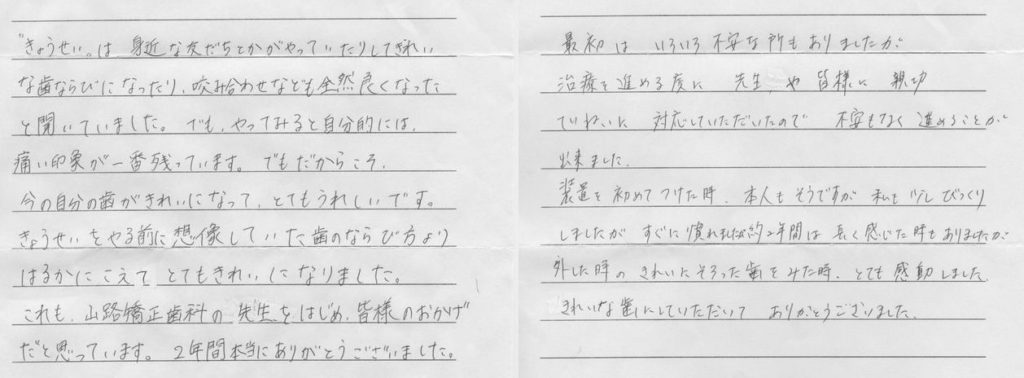 "きょうせい"は 身近な友だちとかがやっていたりしてきれい
な歯ならびになったり、咬み合わせなども全然良くなった
と聞いていました。でも、やってみると自分的には、
痛い印象が一番残っています。でもだからこそ、
今の自分の歯がきれいになって、とてもうれしいです。
きょうせいをやる前に想像していた歯のならび方より
はるかにこえて とてもきれいになりました。
これも、山路矯正歯科の 先生をはじめ、皆様のおかげ
だと思っています。2年間本当にありがとうございました。
最初は いろいろ不安な所もありましたが
治療を進める度に 先生 や 皆様に 親切
ていねいに 対応していただいたので 不安もなく進めることが
出来ました。
装置を初めてつけた時、本人もそうですが 私も少しびっくり
しましたが すぐに慣れましたが約2年間は 長く感じた時もありましたが
外した時の きれいにそろった歯をみた時、とても感動しました。
きれいな歯にしていただいて ありがとうございました。